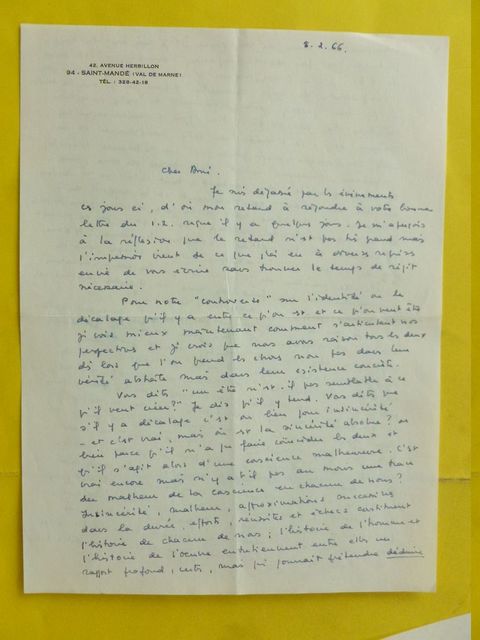 8.2.66.
42, AVENUE HERBILLON
94 - SAINT-MANDÉ (VAL DE MARNE)
TÉL. : 328-42-18
Cher
Je suis dépassé par les événements
ces jours ci, d'où mon retard à répondre à votre bonne
lettre du 1.2. reçue il y a quelques jours. Je m'aperçois
à la réflexion que le retard n'est pas très grand mais
l'impression vient de ce que j'ai eu à diverses reprises
envie de vous écrire sans trouver le temps de répit
nécessaire.
Pour notre "controverse" sur l'identité ou le
décalage qu'il y a entre ce qu'on est et ce qu'on veut être
je vois mieux maintenant comment s'articulent nos
perspectives et je crois que nous avons raison tous les deux
dès lors que l'on prend les choses non pas dans leur
vérité abstraite mais dans leur existence concrète.
Vous dites "un être n'est-il pas semblable à ce
qu'il veut créer?" Je dis qu'il y tend. Vous dites que
s'il y a décalage c'est ou bien pour insincérité
- et c'est vrai, mais où est la sincérité absolue? ou
bien parce qu'il n'a pu faire coïncider les deux et
qu'il s'agit alors d'une conscience malheureuse. C'est
vrai encore mais n'y a-t-il pas au moins une trace
du malheur de la conscience en chacun de nous?
Insincérité, malheur, approximations successives
dans la durée, efforts, réussites et échecs constituent
l'histoire de chacun de nous; l'histoire de l'homme et
l'histoire de l'œuvre entretiennent entre elles un
rapport profond, certes, mais qui pourrait prétendre déduire